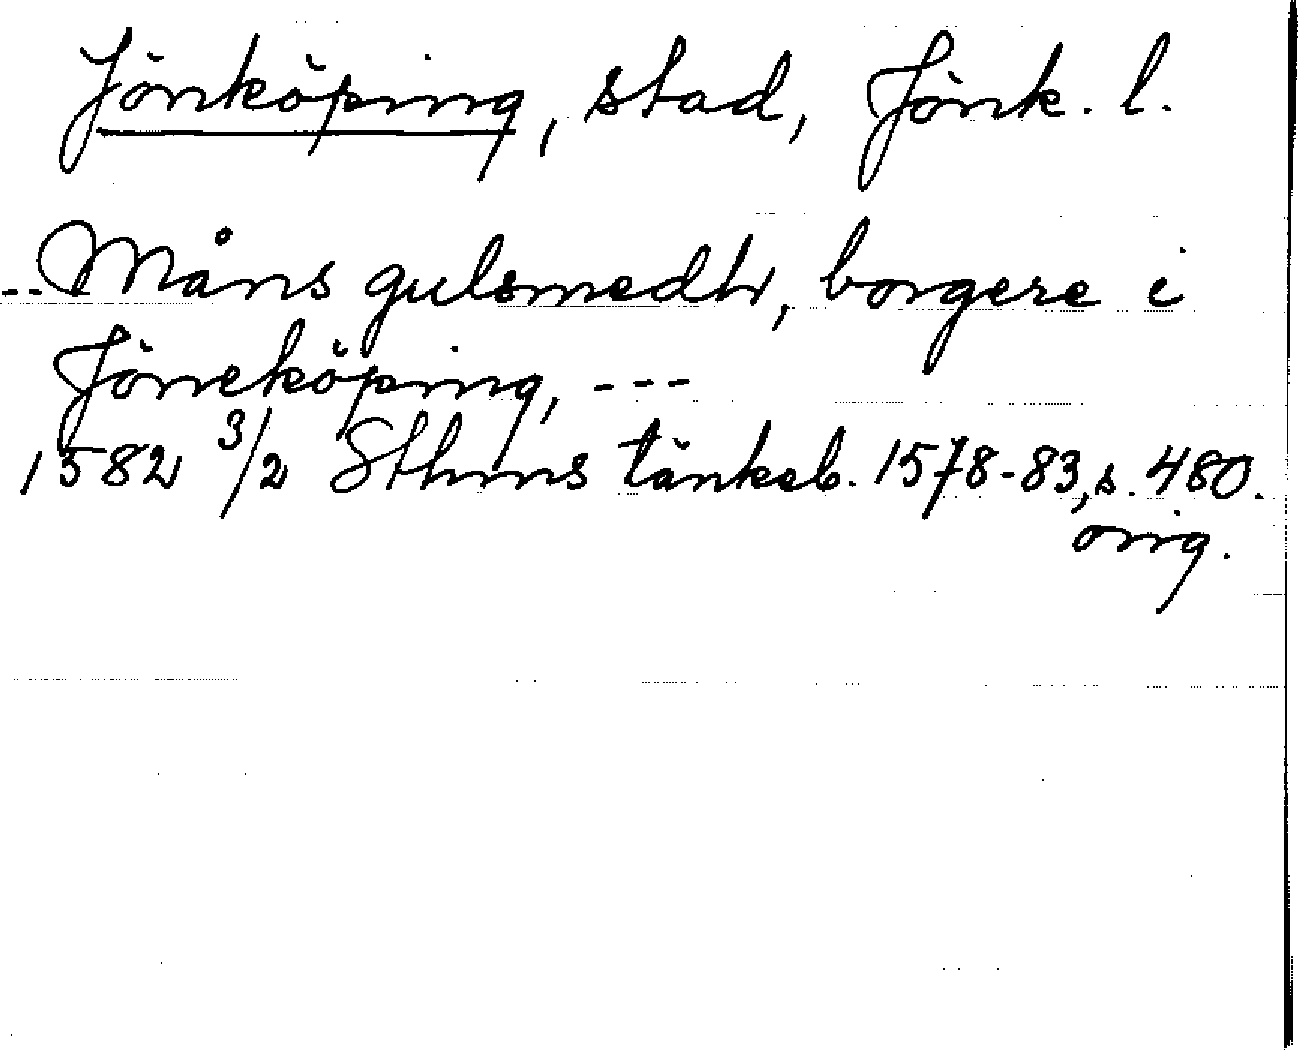 Jönköping, stad, Jönk. l.
--Måns gulsmedh, borgere i
Jöneköping, ---
1582 3/2 Sthms tänkeb. 1578-83, s. 480.
orig.